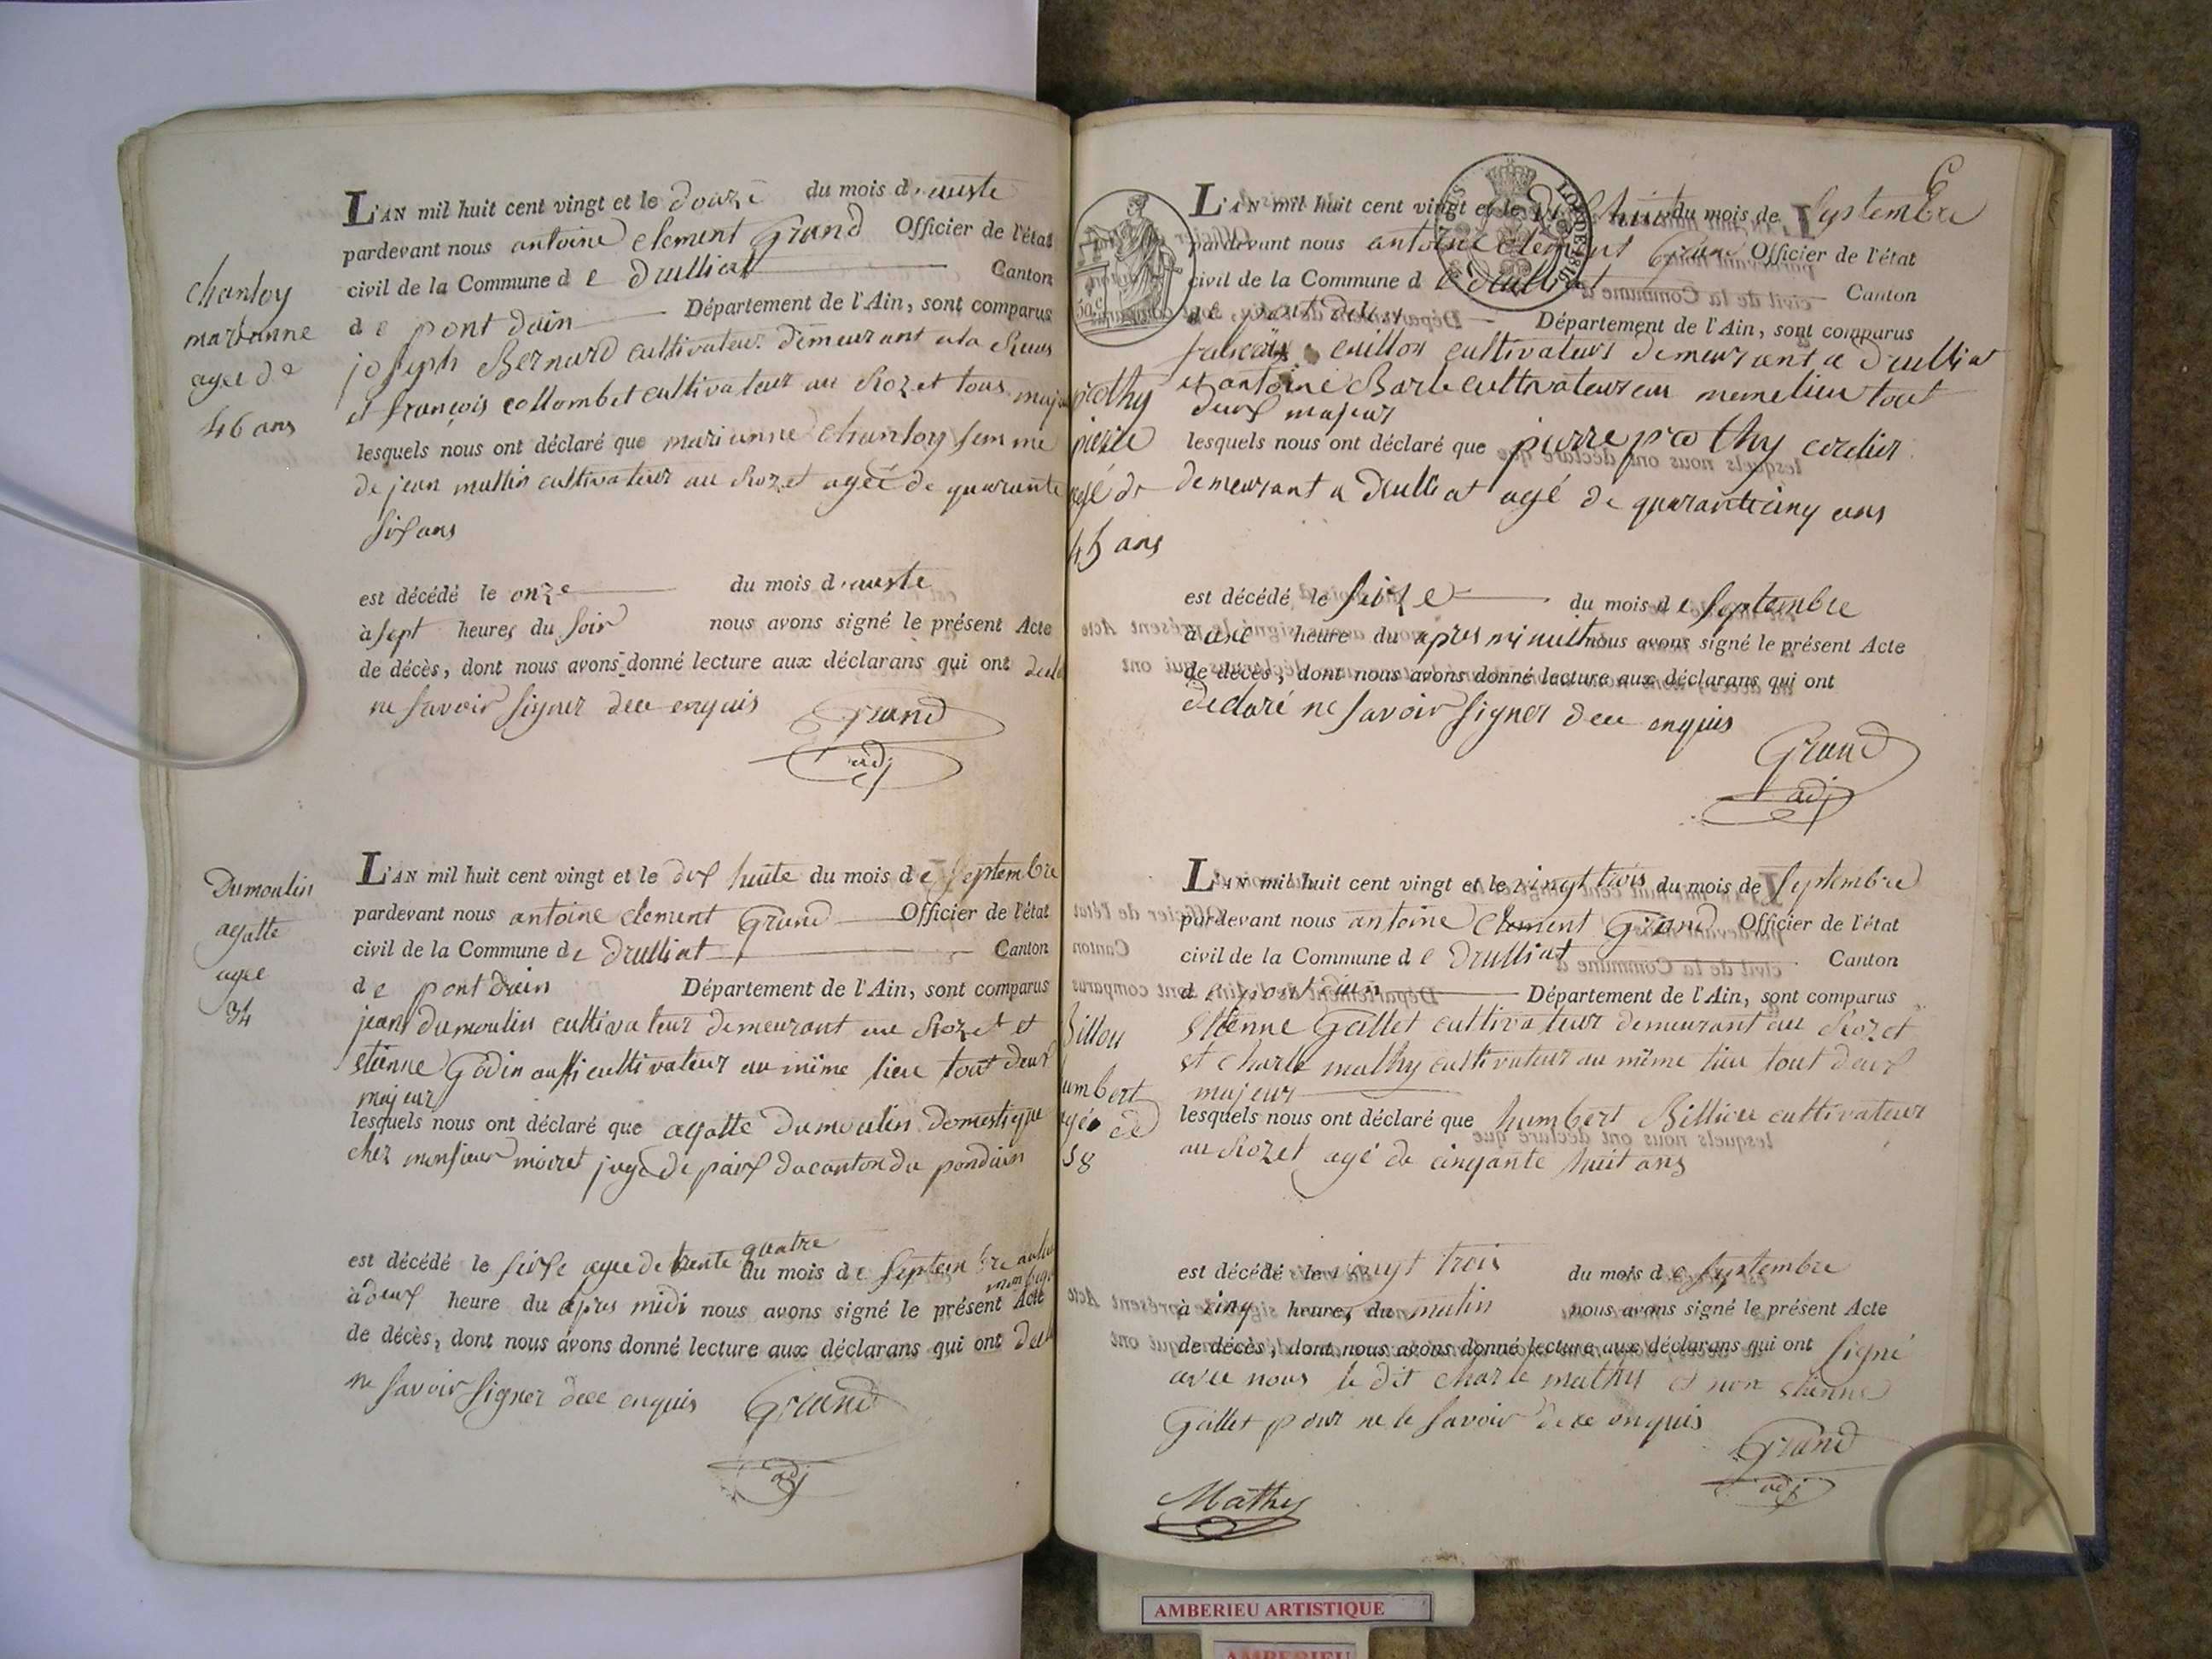 chanloy
marianne
agée de
46 ans
L'AN mil huit cent vingt et le douze du mois d'auste
pardevant nous antoine clement Grand Officier de l'état
civil de la Commune de Drulliat Canton
de pont dain Département de l'Ain, sont comparus
joseph Bernard cultivateur demeurant a la
et françois collombet cultivateur au Rozet tous
lesquels nous ont déclaré que marianne chanloy femme
de jean cultivateur au Rozet agée de quarante
six ans
est décédé le onze du mois d'auste
à sept heures du soir nous avons signé le présent Acte
de décès, dont nous avons donné lecture aux déclarans qui ont
ne savoir signer dece enquis Grand
adj
Dumoulin
agatte
agee
34
L'AN mil huit cent vingt et le dix huite du mois de septembre
pardevant nous antoine clement Grand Officier de l'état
civil de la Commune de Drulliat Canton
de pont dain Département de l'Ain, sont comparus
jean dumoulin cultivateur demeurant au Rozet et
etienne Godin aussi cultivateur au même lieu tout deux
majeur
lesquels nous ont déclaré que agatte Dumoulin Domestique
chez monsieur moiret juge de paix du canton du pondain
est décédé le seize agee de trente quatre du mois de septembre
à deux heure du apres midi nous avons signé le présent Acte
de décès, dont nous avons donné lecture aux déclarans qui ont
ne savoir signer dece enquis Grand
adj
50 c
6
prothy
pierre
agé de
45 ans
L'AN mil huit cent vingt et le dix huit du mois de septembre
pardevant nous antoine clement Grand Officier de l'état
civil de la Commune de Drulliat Canton
de pont dain Département de l'Ain, sont comparus
françois cuillon cultivateur demeurant a drulliat
et antoine Barbe cultivateur au meme lieu tout
deux majeur
lesquels nous ont déclaré que pierre prothy cordier
demeurant a Drulliat agé de quarante cinq ans
est décédé le seize du mois de septembre
à une heure du apres minuit nous avons signé le présent Acte
de décès, dont nous avons donné lecture aux déclarans qui ont
declaré ne savoir signer dece enquis
Grand
adj
Billou
umbert
agée de
58
L'AN mil huit cent vingt et le vingt trois du mois de septembre
pardevant nous antoine Clement Grand Officier de l'état
civil de la Commune de Drulliat Canton
de pont dain Département de l'Ain, sont comparus
Etienne Gallet cultivateur demeurant au Rozet
et charle mathy cultivateur au même lieu tout deux
majeur
lesquels nous ont déclaré que humbert Billiou cultivateur
au Rozet agé de cinqante huit ans
est décédé le vingt trois du mois de septembre
à cinq heures du matin nous avons signé le présent Acte
de décès, dont nous avons donné lecture aux déclarans qui ont signé
avec nous le dit charle mathy et non etienne
Gallet pour ne le savoir de ce enquis
Grand
adj
Mathy
AMBERIEU ARTISTIQUE
AMBERIEU